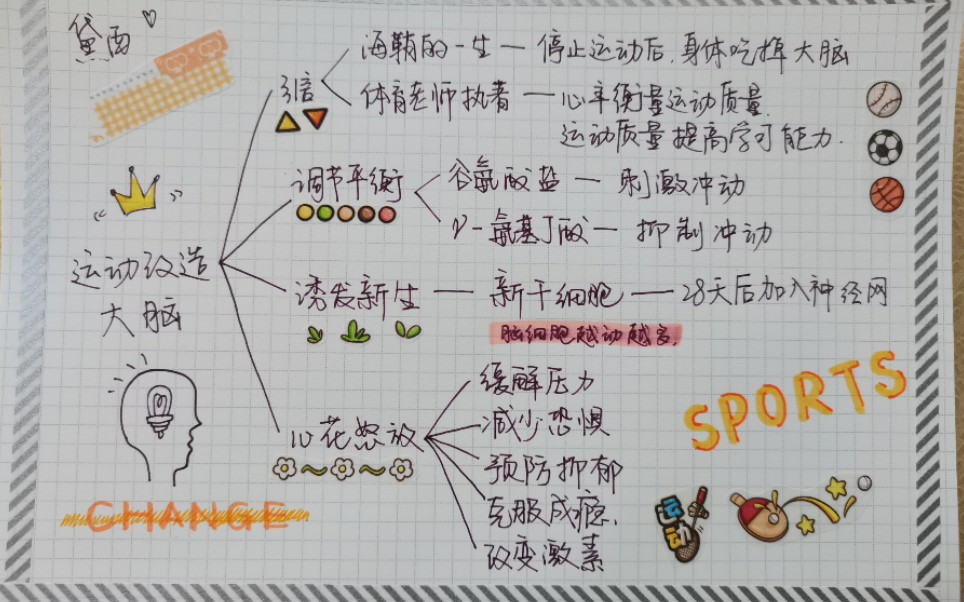 黛西
引言
海鞘的一生 — 停止运动后,身体吃掉大脑
体育老师执著 — 心率衡量运动质量
运动质量提高学习能力.
调节平衡
谷氨酸盐 — 刺激冲动
γ-氨基丁酸 — 抑制冲动
运动改造
大脑
诱发新生 — 新干细胞 — 28天后加入神经网
脑细胞越动越多.
心花怒放
缓解压力
减少恐惧
预防抑郁
克服成瘾.
改变激素
SPORTS
CHANGE
运动